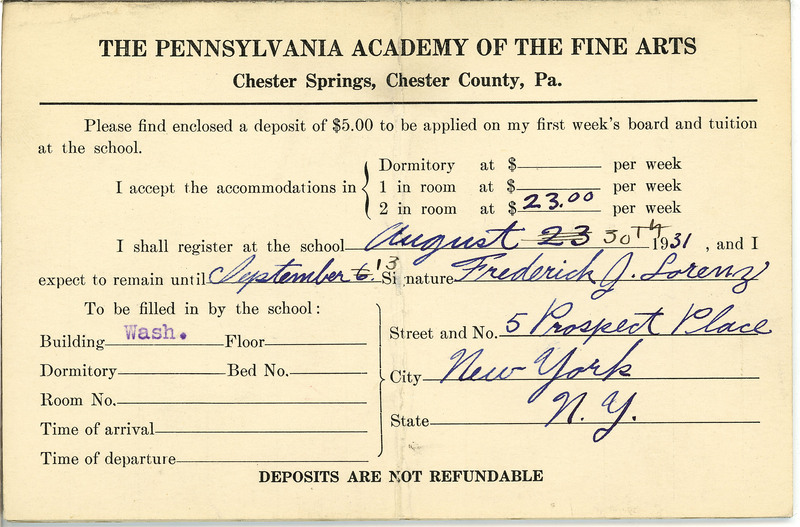 THE PENNSYLVANIA ACADEMY OF THE FINE ARTS
Chester Springs, Chester County, Pa.
Please find enclosed a deposit of $5.00 to be applied on my first week's board and tuition
at the school.
Dormitory at $ per week
I accept the accommodations in 1 in room at $ per week
2 in room at $ 23.00 per week
I shall register at the school August 23 30TH 1931 , and I
expect to remain until September 6. 13 Signature Frederick J. Lorenz
To be filled in by the school:
Building Wash. Floor
Dormitory Bed No.
Room No.
Time of arrival
Time of departure
Street and No. 5 Prospect Place
City New York
State N.Y.
DEPOSITS ARE NOT REFUNDABLE